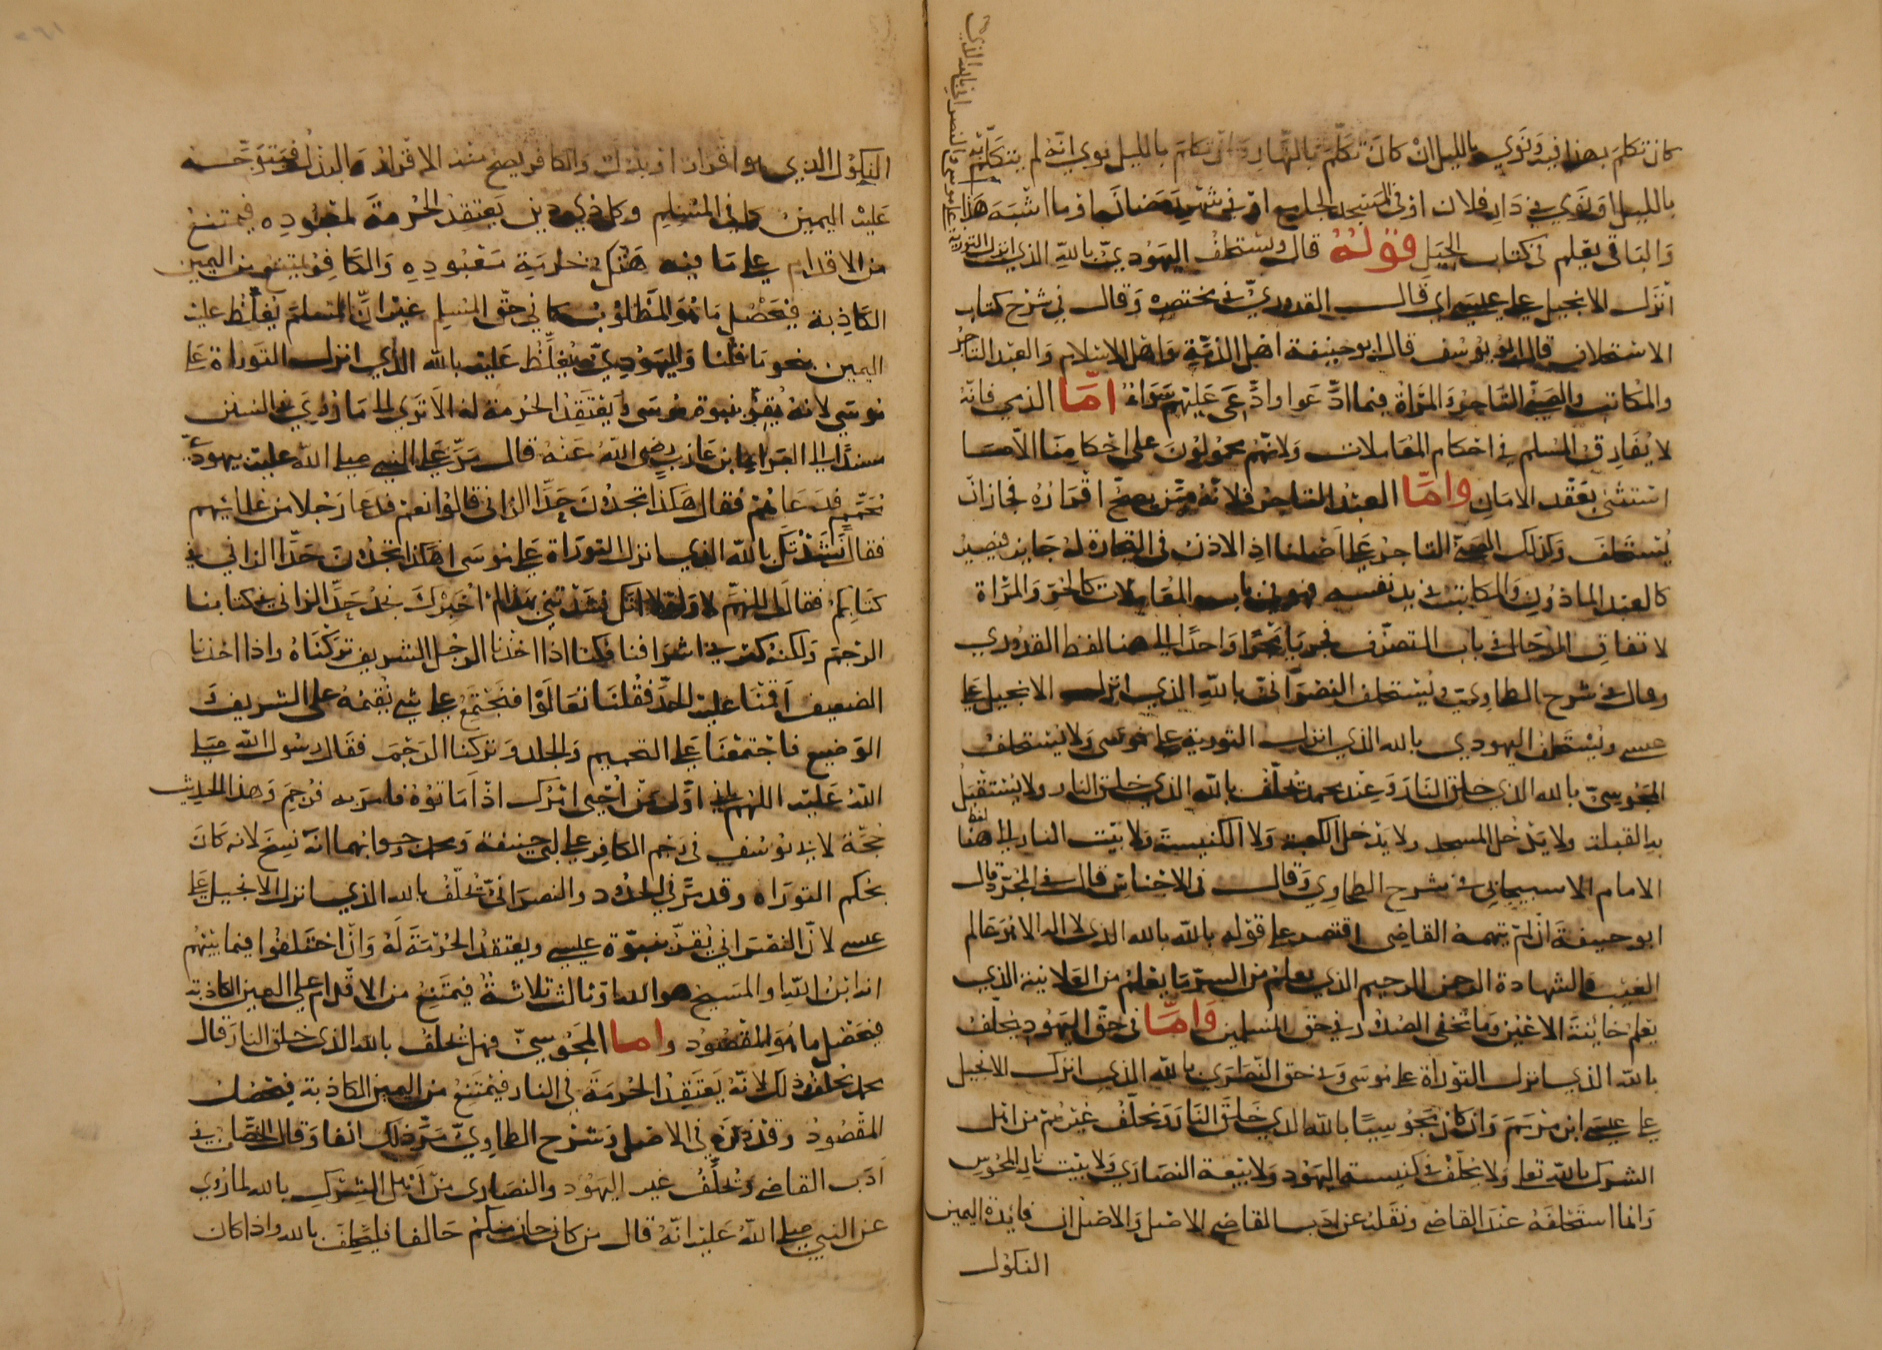 كان تكلم بهذا فيه ونوى بالليل ان كان تكلم بالنهار وان تكلم بالليل نوى انه لم يتكلم به
بالليل او نوى في دار فلان او في المسجد الجامع او في شهر رمضان او ما اشبه هذا
والباقي يعلم في كتاب الحيل قوله قال ويستحلف اليهودي بالله الذي انزل التورية
والنصراني بالله الذي
انزل الانجيل على عيسى اي قال القدوري في مختصره وقال في شرح كتاب
الاستحلاف قال ابو يوسف قال ابو حنيفة اهل الذمة واهل الاسلام والعبد التاجر
والمكاتب والصبي التاجر والمراة فيما ادعوا وادعى عليهم سواء اما الذمي فانه
لا يفارق المسلم في احكام المعاملات ولانهم محمولون على احكامنا الا ما
استثني بعقد الامان واما العبد التاجر فلانه ممن يصح اقراره فجاز ان
يستحلف وكذلك الصبي التاجر على اصلنا اذ الاذن في التجارة له جايز فيصير
كالعبد الماذون والمكاتب في يد نفسه فهو في باب المعاملات كالحر والمراة
لا تفارق الرجال في باب التصرف فجريا مجرا واحدا الى هنا لفظ القدوري
وقال في شرح الطحاوي ويستحلف النصراني بالله الذي انزل الانجيل على
عيسى ويستحلف اليهودي بالله الذي انزل التورية على موسى ولا يستحلف
المجوسي بالله الذي خلق النار وعند محمد يحلف بالله الذي خلق النار ولا يستقبل
به القبلة ولا يدخل المسجد ولا يدخل الكعبة ولا الكنيسة ولا بيت النار الى هنا لفظ
الامام الاسبيجابي في شرح الطحاوي وقال في الاجناس قال في المجرد قال
ابو حنيفة ان لم يتهمه القاضي اقتصر على قوله بالله بالله الذي لا اله الا هو عالم
الغيب والشهادة الرحمن الرحيم الذي يعلم من السر ما يعلم من العلانية الذي
يعلم خائنة الاعين وما تخفي الصدور في حق المسلمين واما في حق اليهود يحلف
بالله الذي انزل التوراة على موسى وفي حق النصارى بالله الذي انزل الانجيل
على عيسى ابن مريم وان كان مجوسيا بالله الذي خلق النار ويحلف غيرهم من اهل
الشرك بالله تعالى ولا يحلف في كنيسة اليهود ولا بيعة النصارى ولا بيت نار المجوس
وانما استحلفه عند القاضي ونقله عن ادب القاضي الاصل والاصل ان فايدة اليمين
النكول
النكول الذي هو اقرار او بذل والكافر يصح منه الاقرار والبذل فيتوجه
عليه اليمين كما في المسلم وكل ذي دين يعتقد الحرمة لمعبوده فيمتنع
من الاقدام على ما فيه هتك حرمة معبوده والكافر يمتنع من اليمين
الكاذبة فيحصل ما هو المطلوب كما في حق المسلم غير ان المسلم يغلظ عليه
اليمين بنحو ما قلنا واليهودي يغلظ عليه بالله الذي انزل التوراة على
موسى لانه يقر بنبوة موسى ويعتقد الحرمة له الا ترى الى ما روي في السنن
مسندا الى البراء بن عازب رضي الله عنه قال مر على النبي صلى الله عليه يهودي
محمم فدعاهم فقال هكذا تجدون حد الزاني قالوا نعم فدعا رجلا من علمائهم
فقال نشدتك بالله الذي انزل التوراة على موسى اهكذا تجدون حد الزاني في
كتابكم فقال اللهم لا ولولا انك نشدتني بهذا لم اخبرك نجد حد الزاني في كتابنا
الرجم ولكنه كثر في اشرافنا فكنا اذا اخذنا الرجل الشريف تركناه واذا اخذنا
الضعيف اقمنا عليه الحد فقلنا تعالوا فنجتمع على شي نقيمه على الشريف و
الوضيع فاجتمعنا على التحميم والجلد وتركنا الرجم فقال رسول الله صلى
الله عليه اللهم اني اول من احيى امرك اذ اماتوه فامر به فرجم وهذا الحديث
حجة لابي يوسف في رجم الكافر على ابي حنيفة ومحمد وجوابهما انه نسخ لانه كان
بحكم التوراة وقد مر في الحدود والنصراني يحلف بالله الذي انزل الانجيل على
عيسى لان النصراني يقر بنبوة عيسى ويعتقد الحرمة له وان اختلفوا فيما بينهم
انه ابن الله او المسيح هو الله او ثالث ثلاثة فيمتنع من الاقدام على اليمين الكاذبة
فيحصل ما هو المقصود واما المجوسي فهل يحلف بالله الذي خلق النار قال
محمد يحلف وذلك لانه يعتقد الحرمة في النار فيمتنع من اليمين الكاذبة فيحصل
المقصود وقد ذكره في الاصل وشرح الطحاوي مر ذلك انفا وقال الخصاف في
ادب القاضي ويحلف غير اليهود والنصارى من اهل الشرك بالله لما روي
عن النبي صلى الله عليه انه قال من كان منكم حالفا فليحلف بالله واذا كان